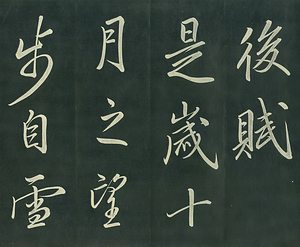 後賦
是歲十
月之望
步自雪